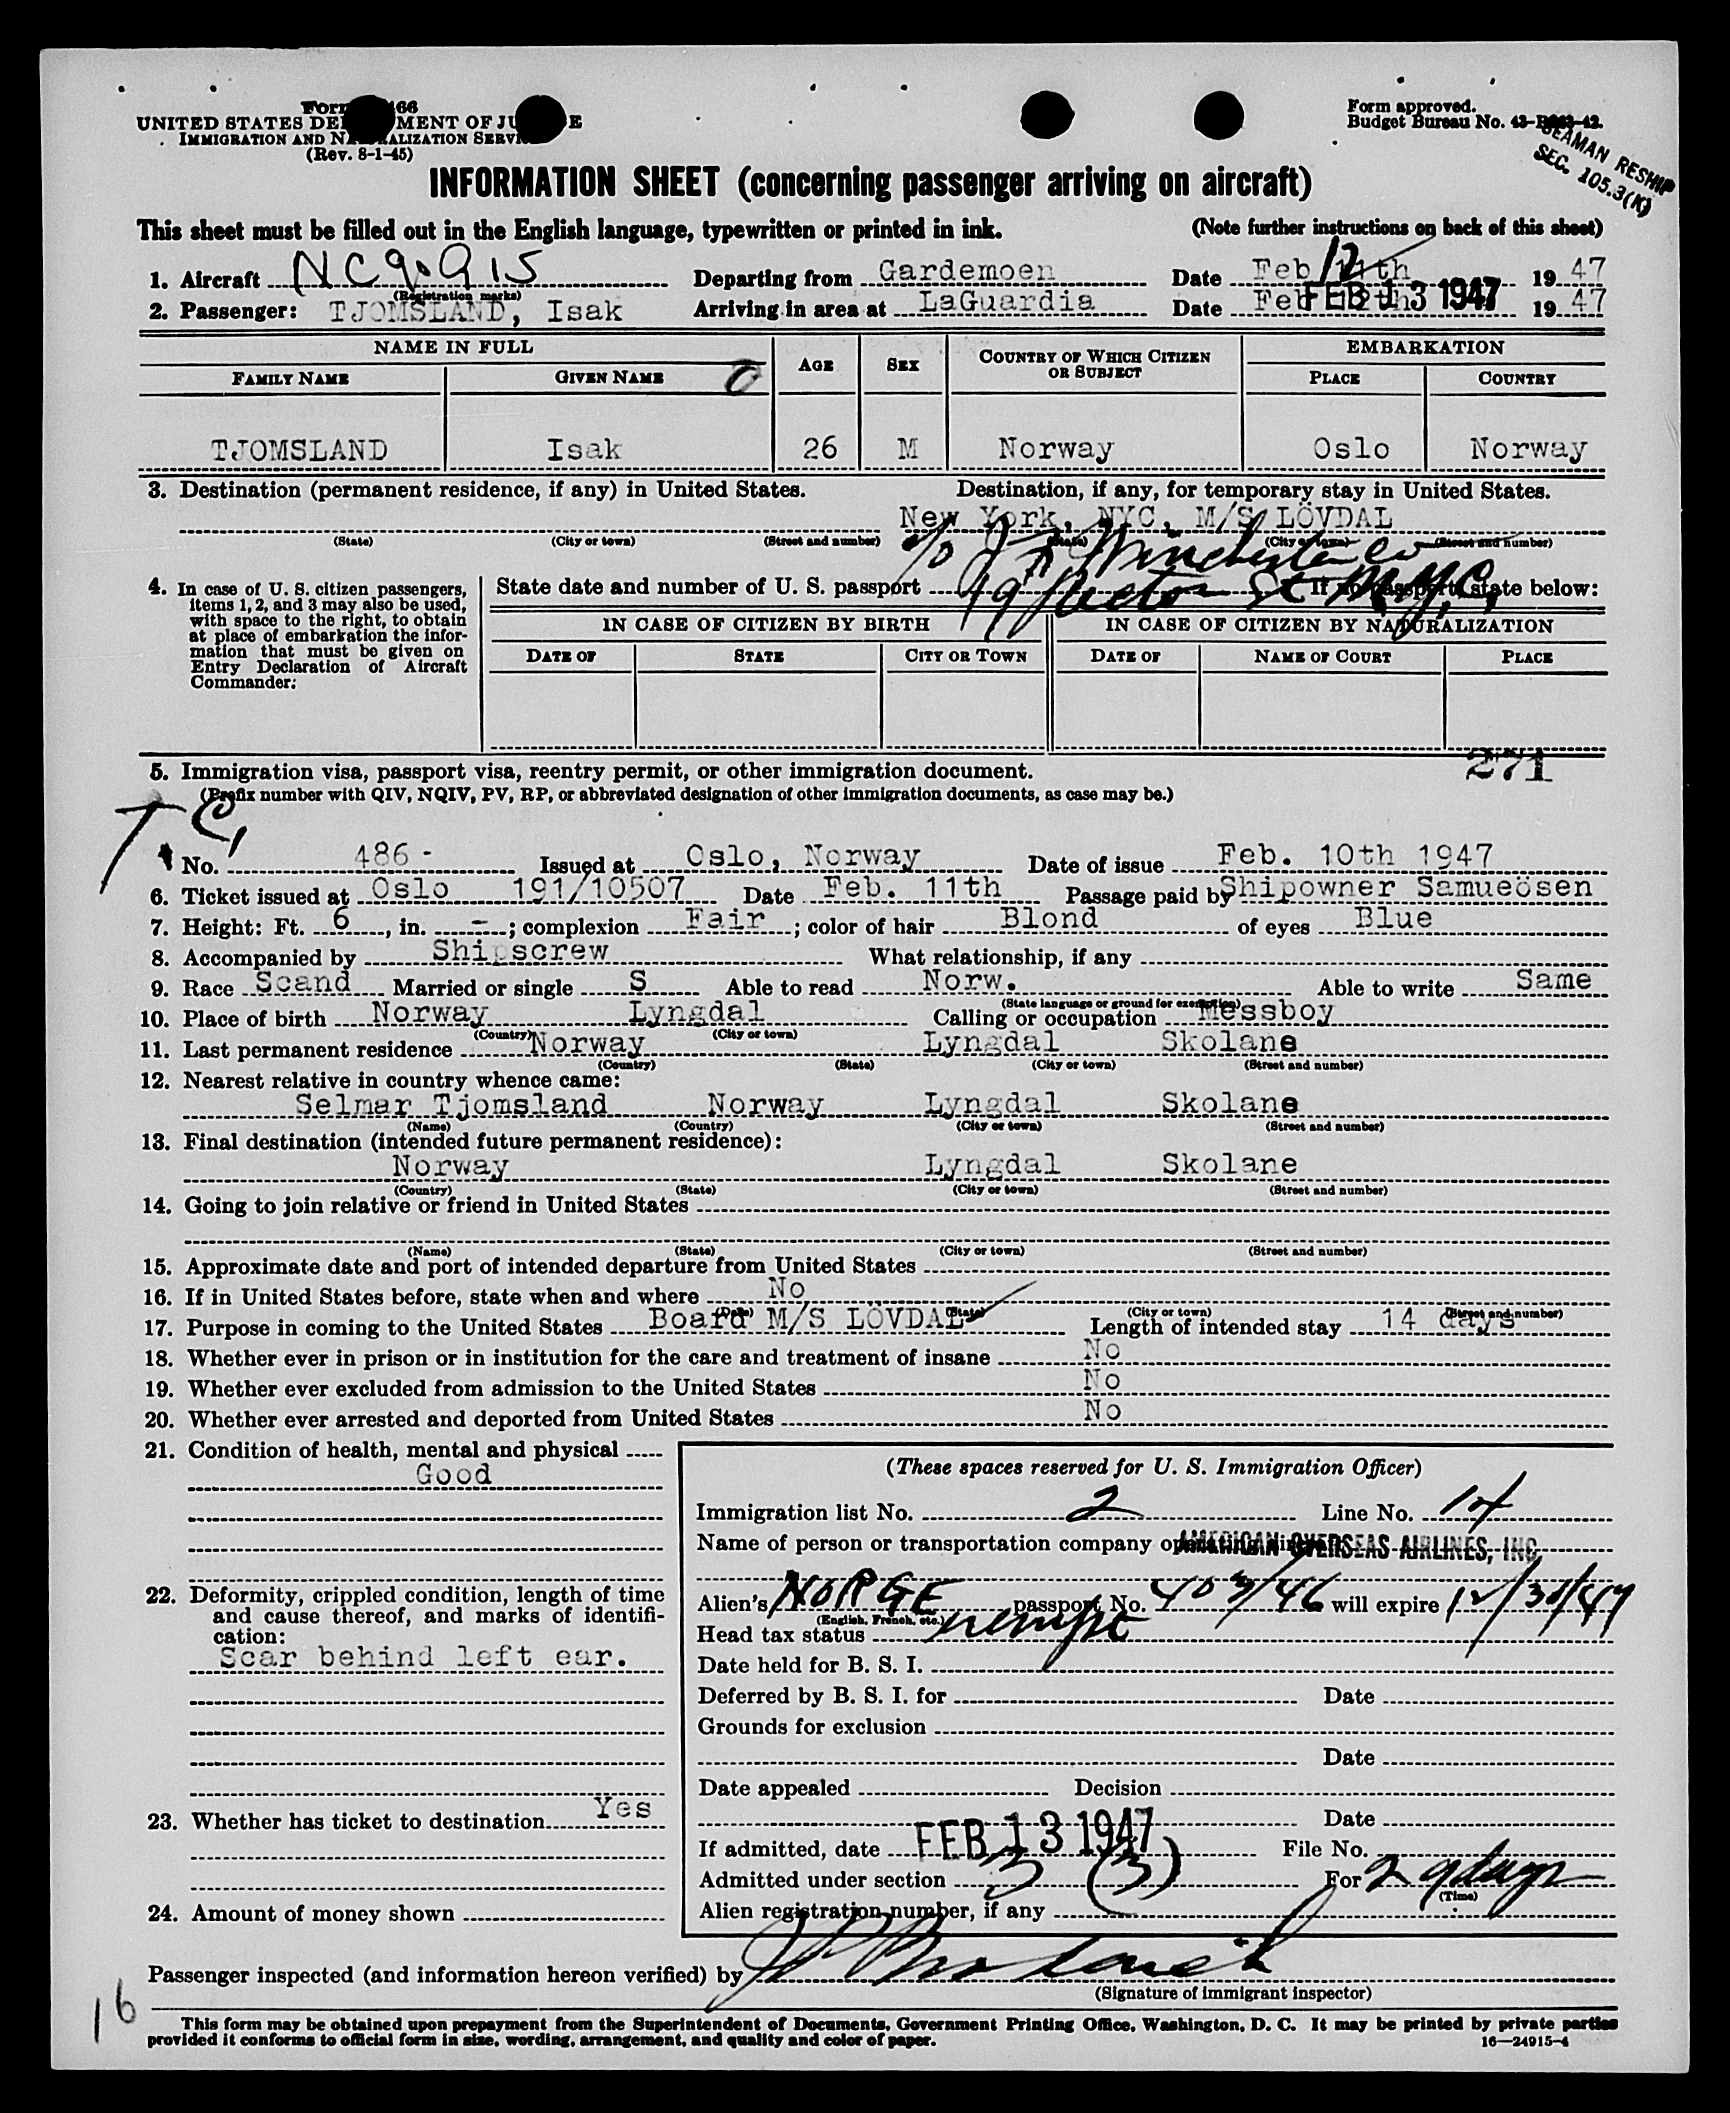 UNITED STATES DEPARTMENT OF JUSTICE
IMMIGRATION AND NATURALIZATION SERVICE
(Rev. 8-1-45)
Form approved.
Budget Bureau No.
SEAMAN RESHIP
SEC. 105.3(K)
INFORMATION SHEET (concerning passenger arriving on aircraft)
This sheet must be filled out in the English language, typewritten or printed in ink. (Note further instructions on back of this sheet)
1. Aircraft NC90915 Departing from Gardemoen Date Feb 11th 12 1947
(Registration marks)
2. Passenger: TJOMSLAND, Isak Arriving in area at LaGuardia Date Feb 12th FEB 13 1947 1947
NAME IN FULL AGE SEX COUNTRY OF WHICH CITIZEN OR SUBJECT EMBARKATION
FAMILY NAME GIVEN NAME PLACE COUNTRY
TJOMSLAND Isak 26 M Norway Oslo Norway
3. Destination (permanent residence, if any) in United States. Destination, if any, for temporary stay in United States.
New York, NYC, M/S LÖVDAL
(State) (City or town) (Street and number) (State) (City or town) (Street and number)
c/o J F Winchester Co
19 Rector St N.Y.C.
4. In case of U. S. citizen passengers, items 1, 2, and 3 may also be used, with space to the right, to obtain at place of embarkation the information that must be given on Entry Declaration of Aircraft Commander:
State date and number of U. S. passport If no passport, state below:
IN CASE OF CITIZEN BY BIRTH IN CASE OF CITIZEN BY NATURALIZATION
DATE OF STATE CITY OR TOWN DATE OF NAME OF COURT PLACE
271
5. Immigration visa, passport visa, reentry permit, or other immigration document.
(Prefix number with QIV, NQIV, PV, RP, or abbreviated designation of other immigration documents, as case may be.)
T.C.
No. 486 - Issued at Oslo, Norway Date of issue Feb. 10th 1947
6. Ticket issued at Oslo 191/10507 Date Feb. 11th Passage paid by Shipowner Samueösen
7. Height: Ft. 6, in. -; complexion Fair; color of hair Blond of eyes Blue
8. Accompanied by Shipscrew What relationship, if any
9. Race Scand Married or single S Able to read Norw. Able to write Same
(State language or ground for exemption)
10. Place of birth Norway Lyngdal Calling or occupation Messboy
(Country) (City or town)
11. Last permanent residence Norway Lyngdal Skolane
(Country) (State) (City or town) (Street and number)
12. Nearest relative in country whence came:
Selmar Tjomsland Norway Lyngdal Skolane
(Name) (Country) (City or town) (Street and number)
13. Final destination (intended future permanent residence):
Norway Lyngdal Skolane
(Country) (State) (City or town) (Street and number)
14. Going to join relative or friend in United States
(Name) (State) (City or town) (Street and number)
15. Approximate date and port of intended departure from United States
16. If in United States before, state when and where No
(Date) (State) (City or town) (Street and number)
17. Purpose in coming to the United States Board M/S LÖVDAL Length of intended stay 14 days
18. Whether ever in prison or in institution for the care and treatment of insane No
19. Whether ever excluded from admission to the United States No
20. Whether ever arrested and deported from United States No
21. Condition of health, mental and physical
Good
22. Deformity, crippled condition, length of time and cause thereof, and marks of identification:
Scar behind left ear.
23. Whether has ticket to destination Yes
24. Amount of money shown
(These spaces reserved for U. S. Immigration Officer)
Immigration list No. 2 Line No. 14
Name of person or transportation company operating aircraft AMERICAN OVERSEAS AIRLINES, INC.
Alien's NORGE passport No. 403/46 will expire 12/31/47
(English, French, etc.)
Head tax status exempt
Date held for B. S. I.
Deferred by B. S. I. for Date
Grounds for exclusion
Date
Date appealed Decision
Date
If admitted, date FEB 13 1947 File No.
Admitted under section 3 (3) For 29 days
(Time)
Alien registration number, if any
Passenger inspected (and information hereon verified) by
(Signature of immigrant inspector)
16
This form may be obtained upon prepayment from the Superintendent of Documents, Government Printing Office, Washington, D. C. It may be printed by private parties
provided it conforms to official form in size, wording, arrangement, and quality and color of paper. 16—24915-4